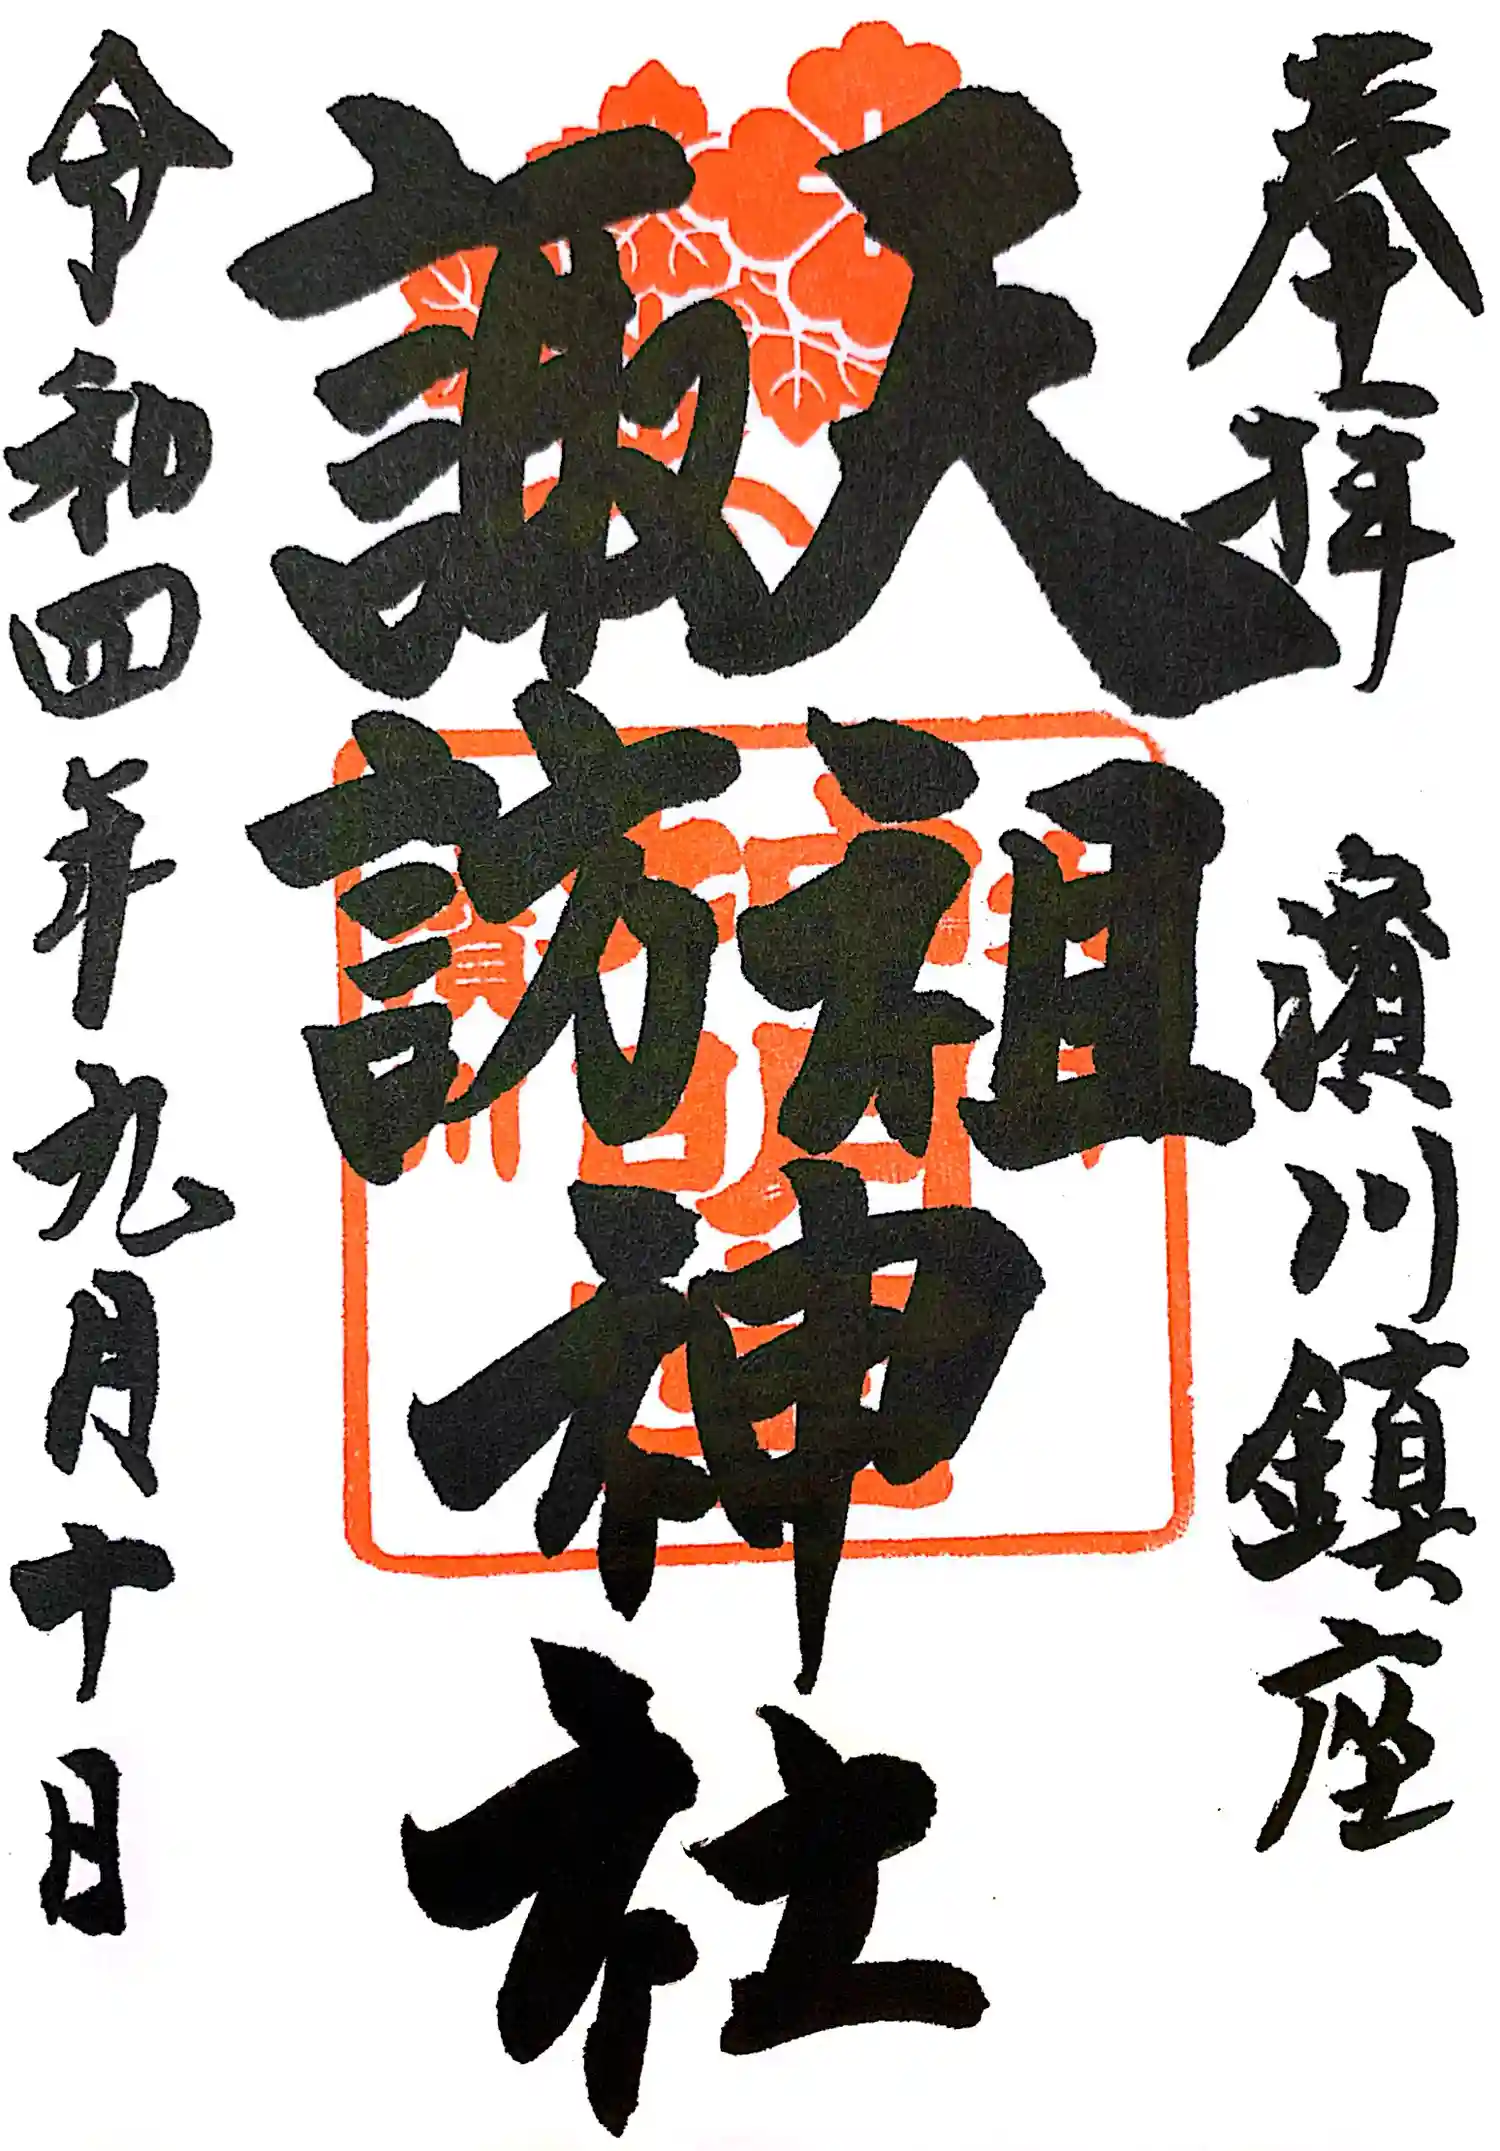 奉拝 濱川鎮座
天祖
諏訪
神社
令和四年九月十日